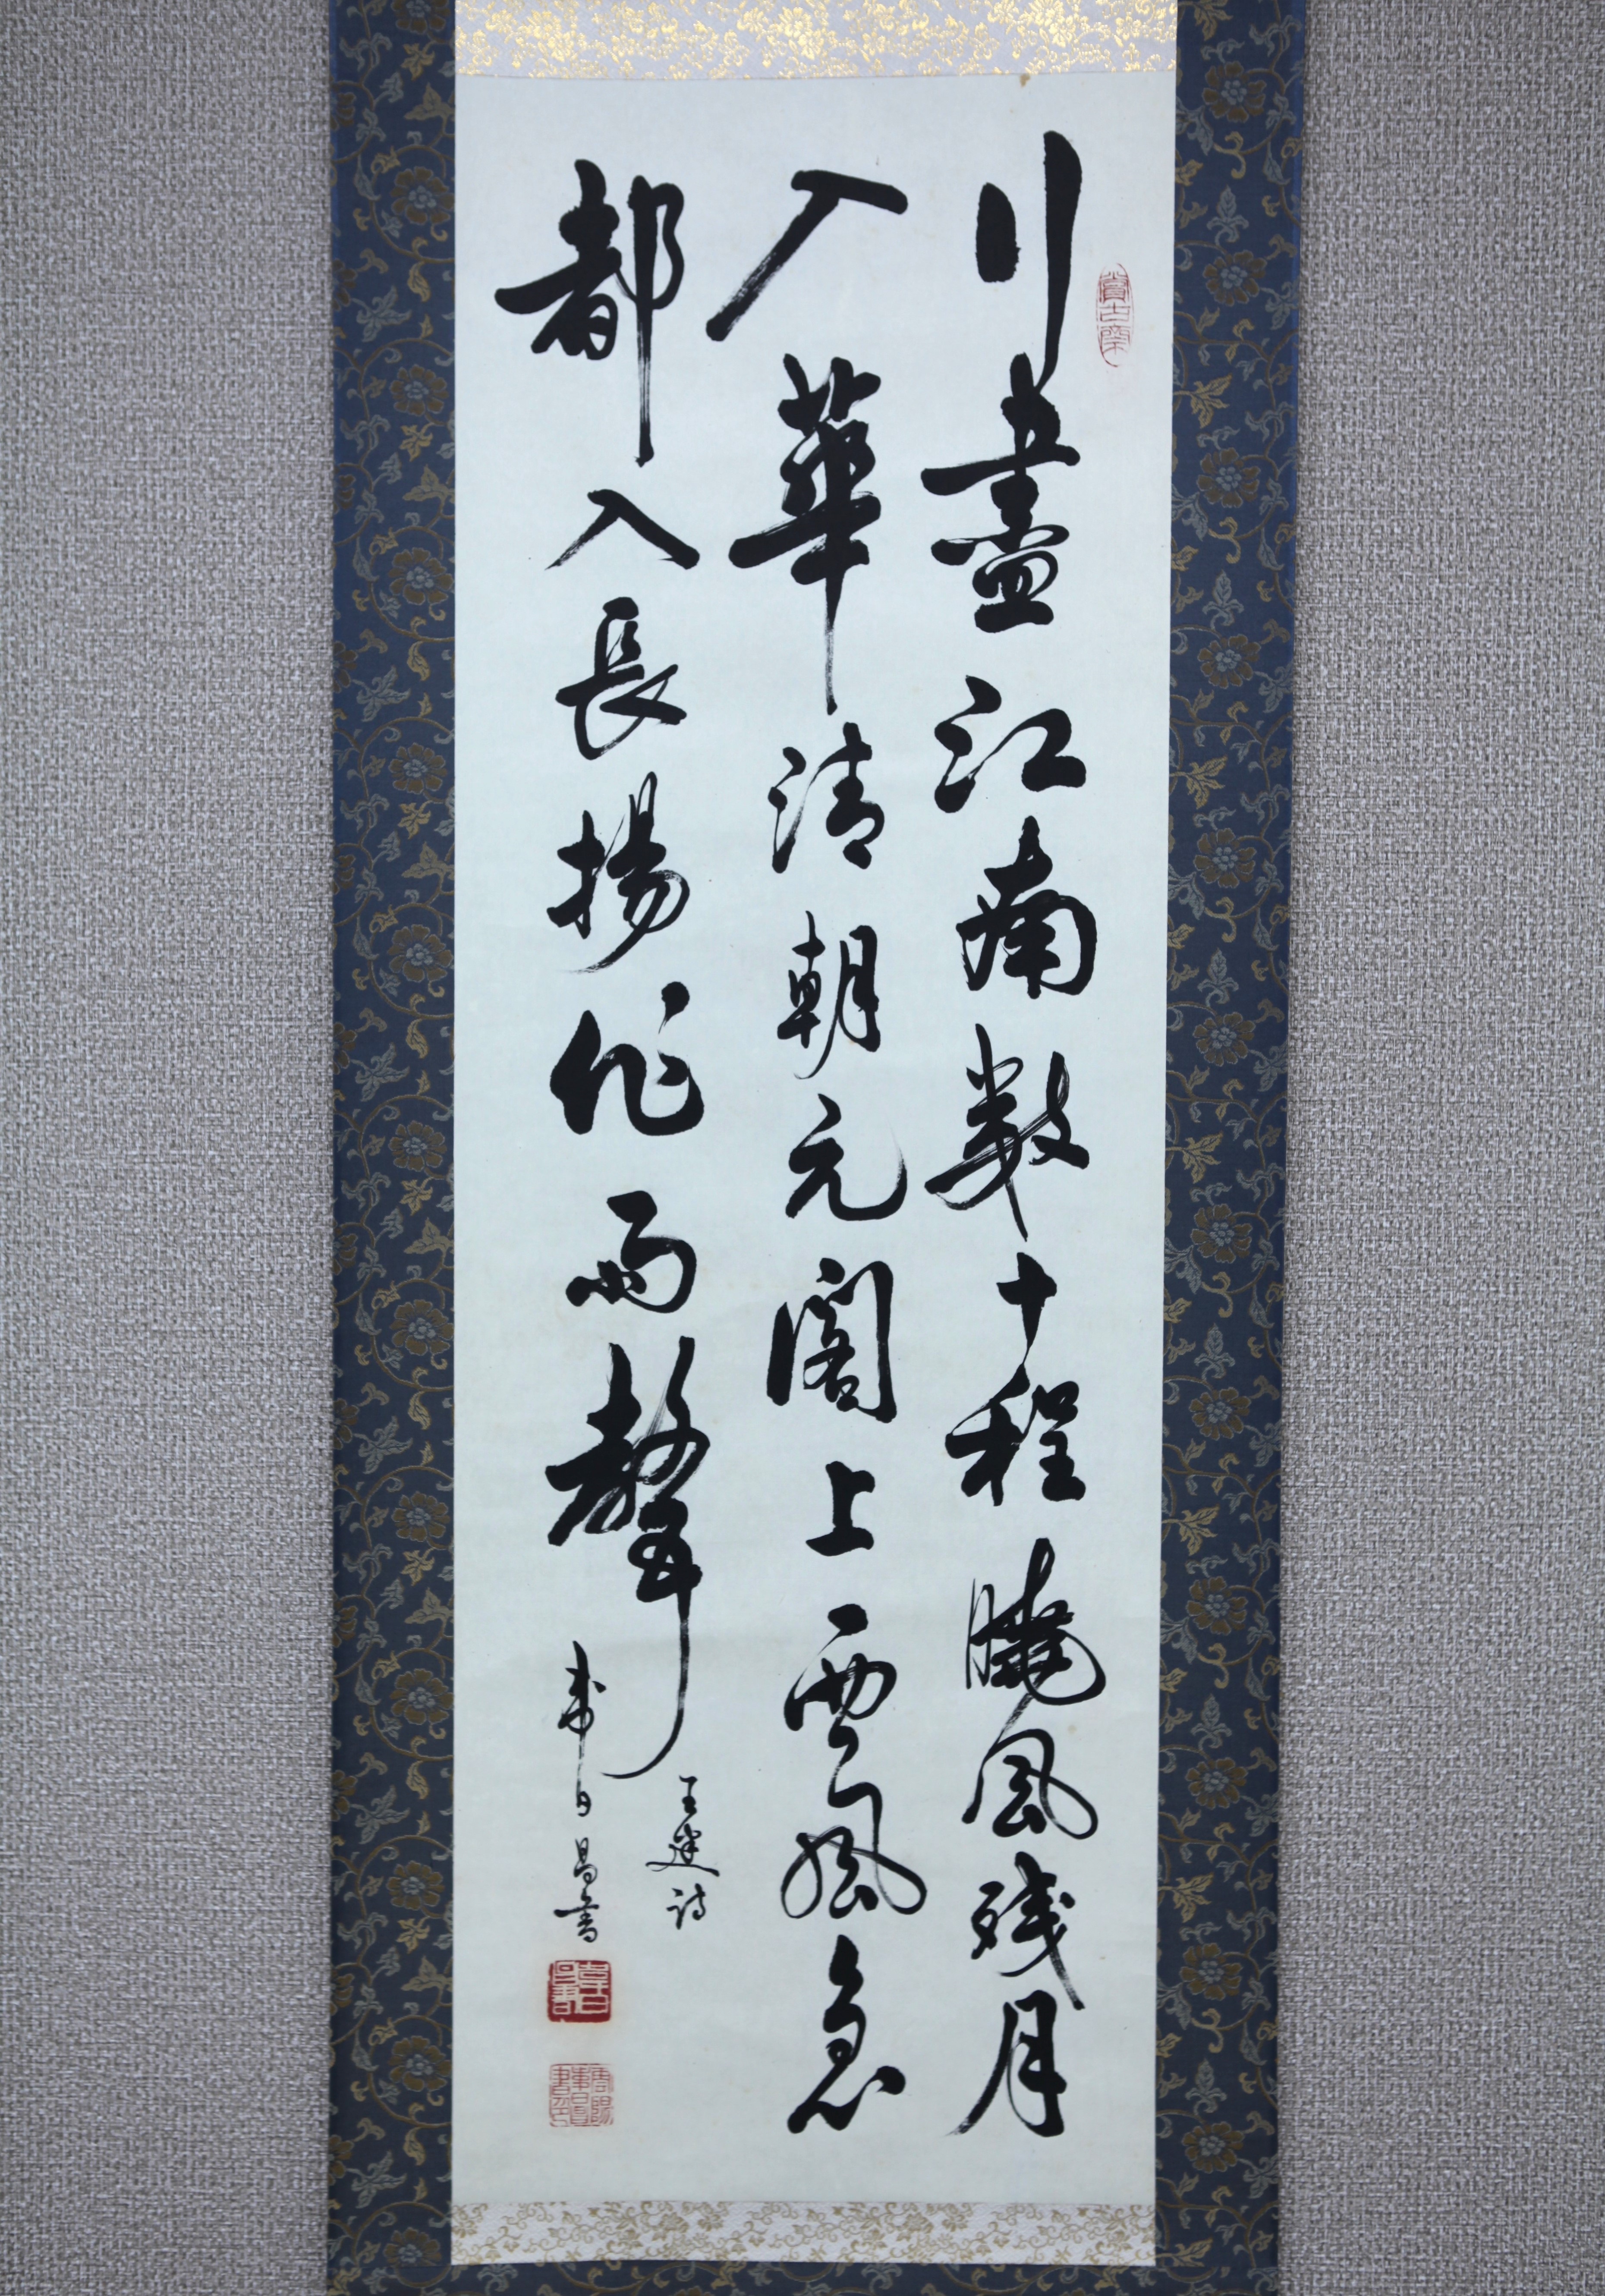 行盡江南數十程曉風残月
入華清朝元閣上西風急
都入長揚作雨聲
王建詩
昌書
賞古齋